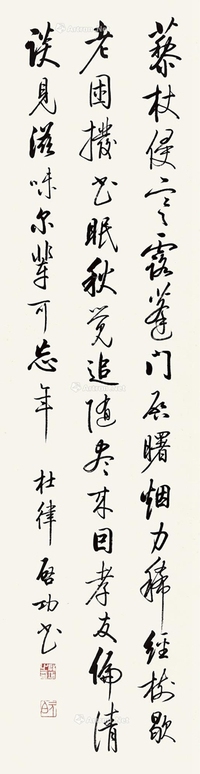 藜杖侵寒露蓬门启曙烟力稀經树歇
老困撥书眠秋觉追随尽来因孝友偏清
谈見滋味尔輩可忘年 杜律 启功书